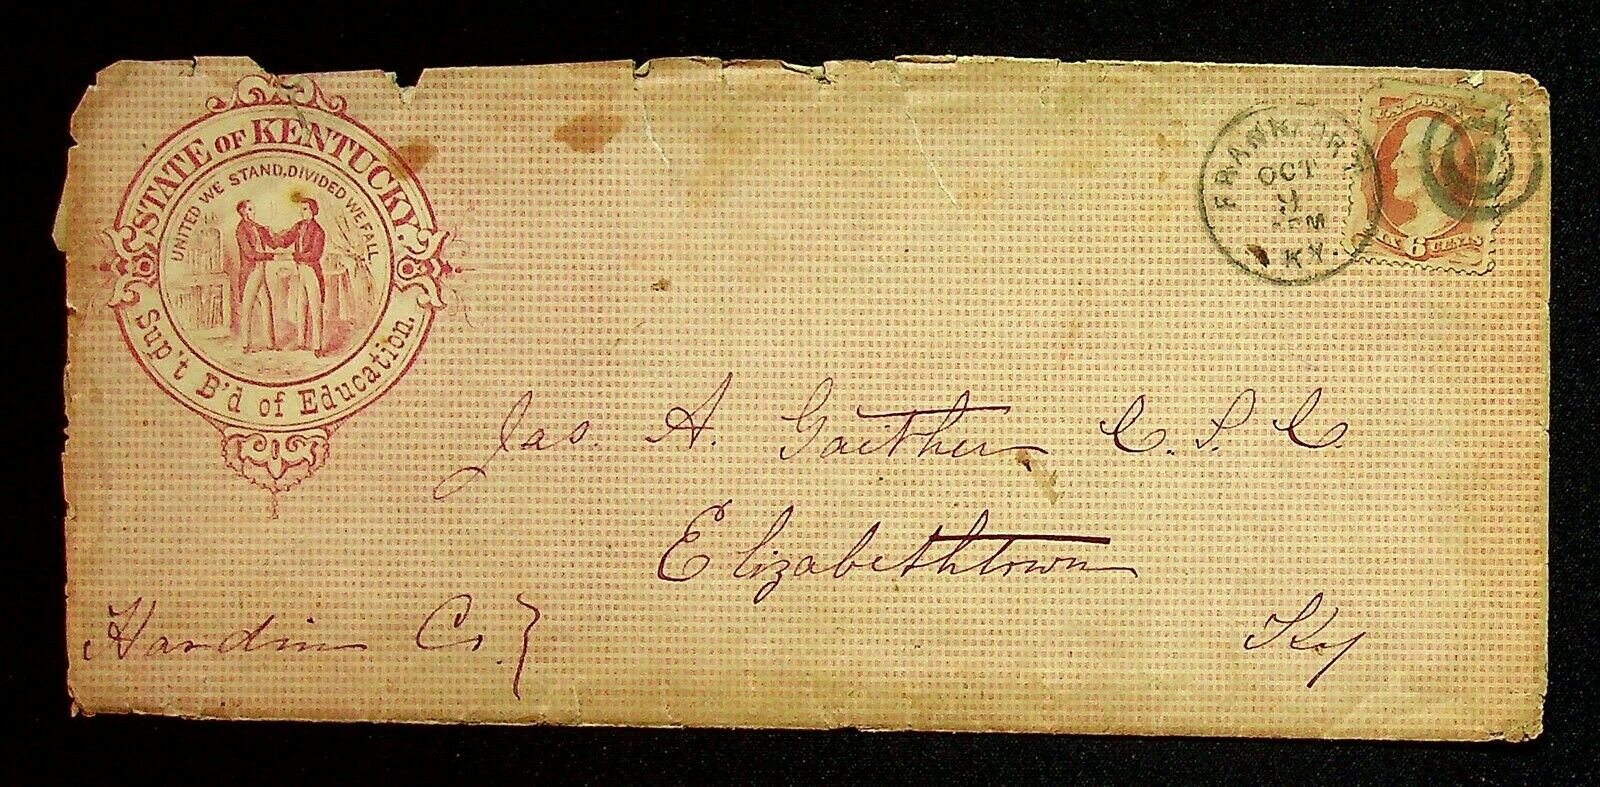 STATE OF KENTUCKY.
UNITED WE STAND, DIVIDED WE FALL
Sup't B'd of Education.
FRANKFORT
OCT
KY.
6
Jas. A. Gaither C. S. C.
Elizabethtown
Hardin Co.
Ky